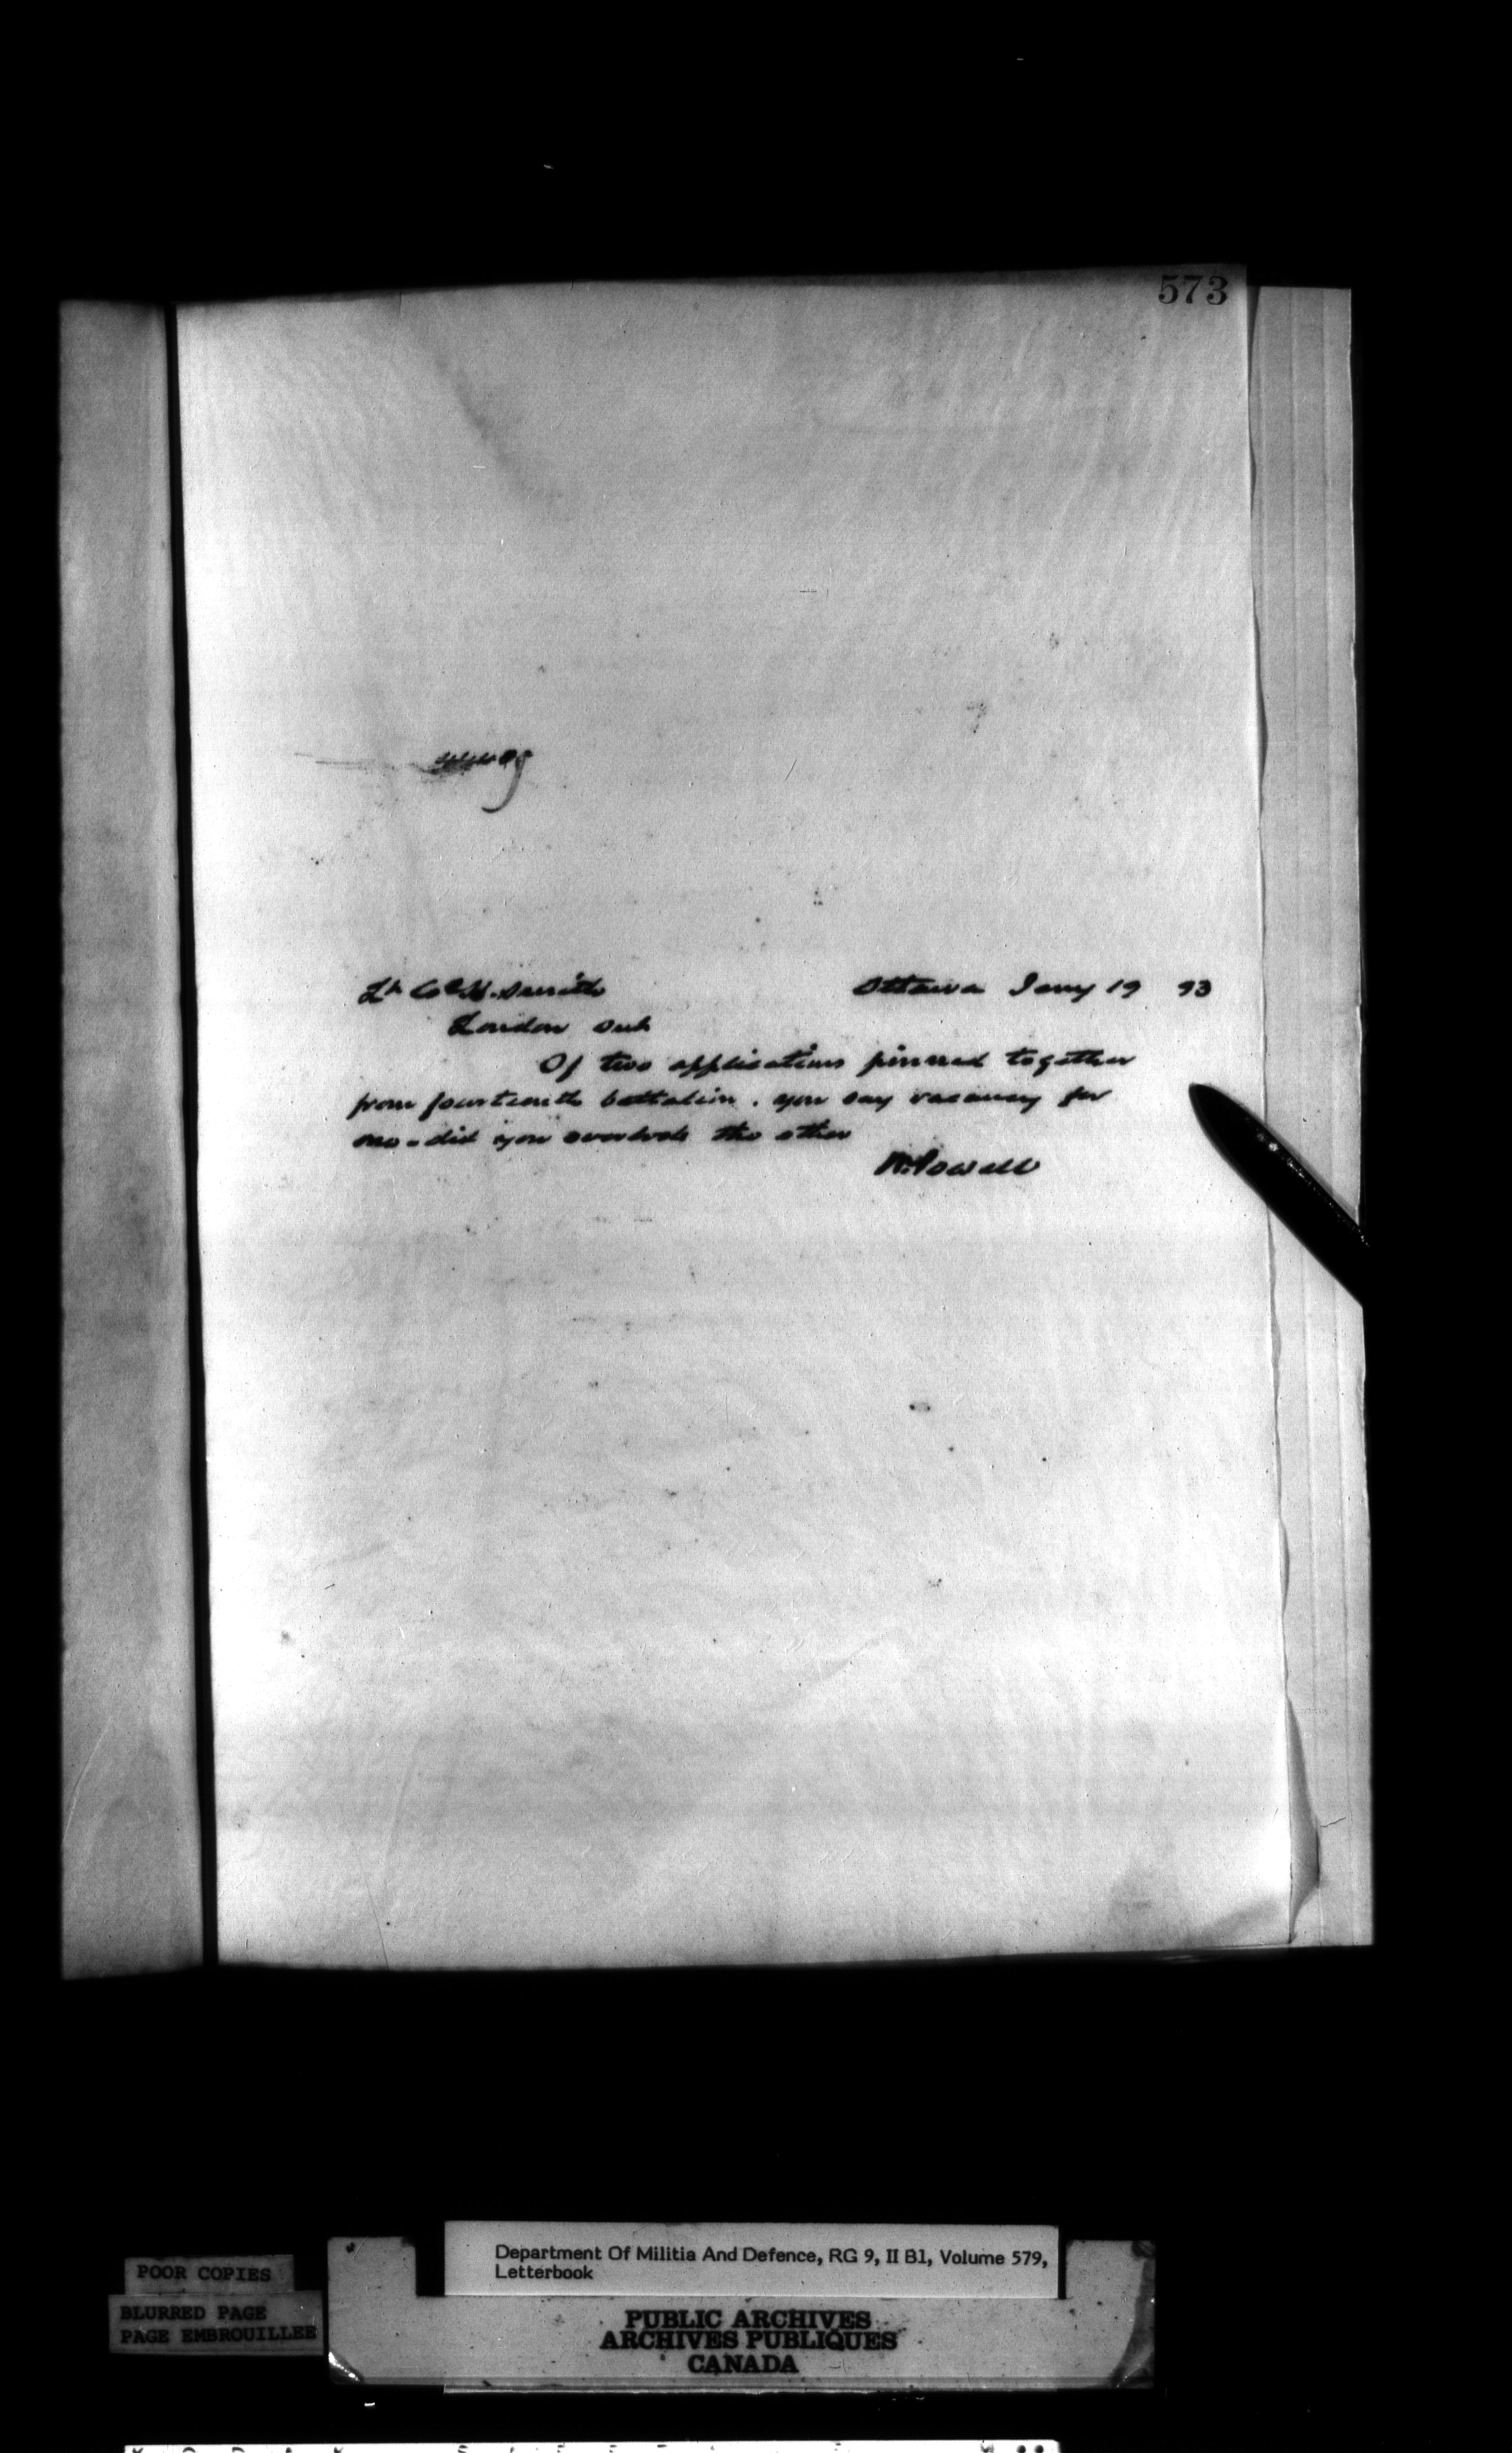 573
Lt Col H. Smith
Ottawa Jany 19 93
London Ont
Of two applications pinned together
from fourteenth battalion. you say vacancy for
one - did you overlook the other
W. Powell
Department Of Militia And Defence, RG 9, II B1, Volume 579,
Letterbook
POOR COPIES
BLURRED PAGE
PAGE EMBROUILLEE
PUBLIC ARCHIVES
ARCHIVES PUBLIQUES
CANADA